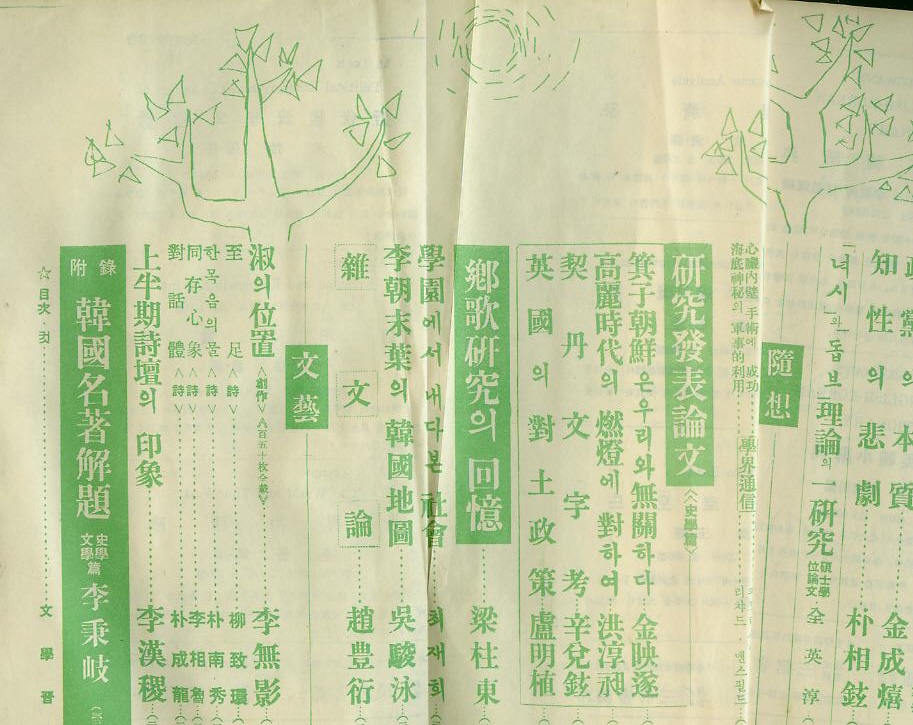 知性의 悲劇 朴相鉉
「녀시」와 돕브 理論의 一研究 碩士學位論文 全英淳
隨想
心臟內壁手術에 成功
海底神秘의 軍事的利用
學界通信
研究發表論文 〈史學篇〉
箕子朝鮮은 우리와 無關하다 金映遂
高麗時代의 燃燈에 對하여 洪淳昶
契丹文字考 辛兌鉉
英國의 對土政策 盧明植
鄕歌硏究의 回憶 梁柱東
學園에서 내다본 社會 최재희
李朝末葉의 韓國地圖 吳駿泳
雜文論 趙豊衍
文藝
淑의 位置 〈創作〉 〈百五十枚全載〉 李無影
至足 〈詩〉 柳致環
한목음의 물 〈詩〉 朴南秀
同存心象 〈詩〉 李相魯
對話體 〈詩〉 朴成龍
上半期詩壇의 印象 李漢稷
附錄 韓國名著解題 史學文學篇 李秉岐
☆目次・컷 文學晋